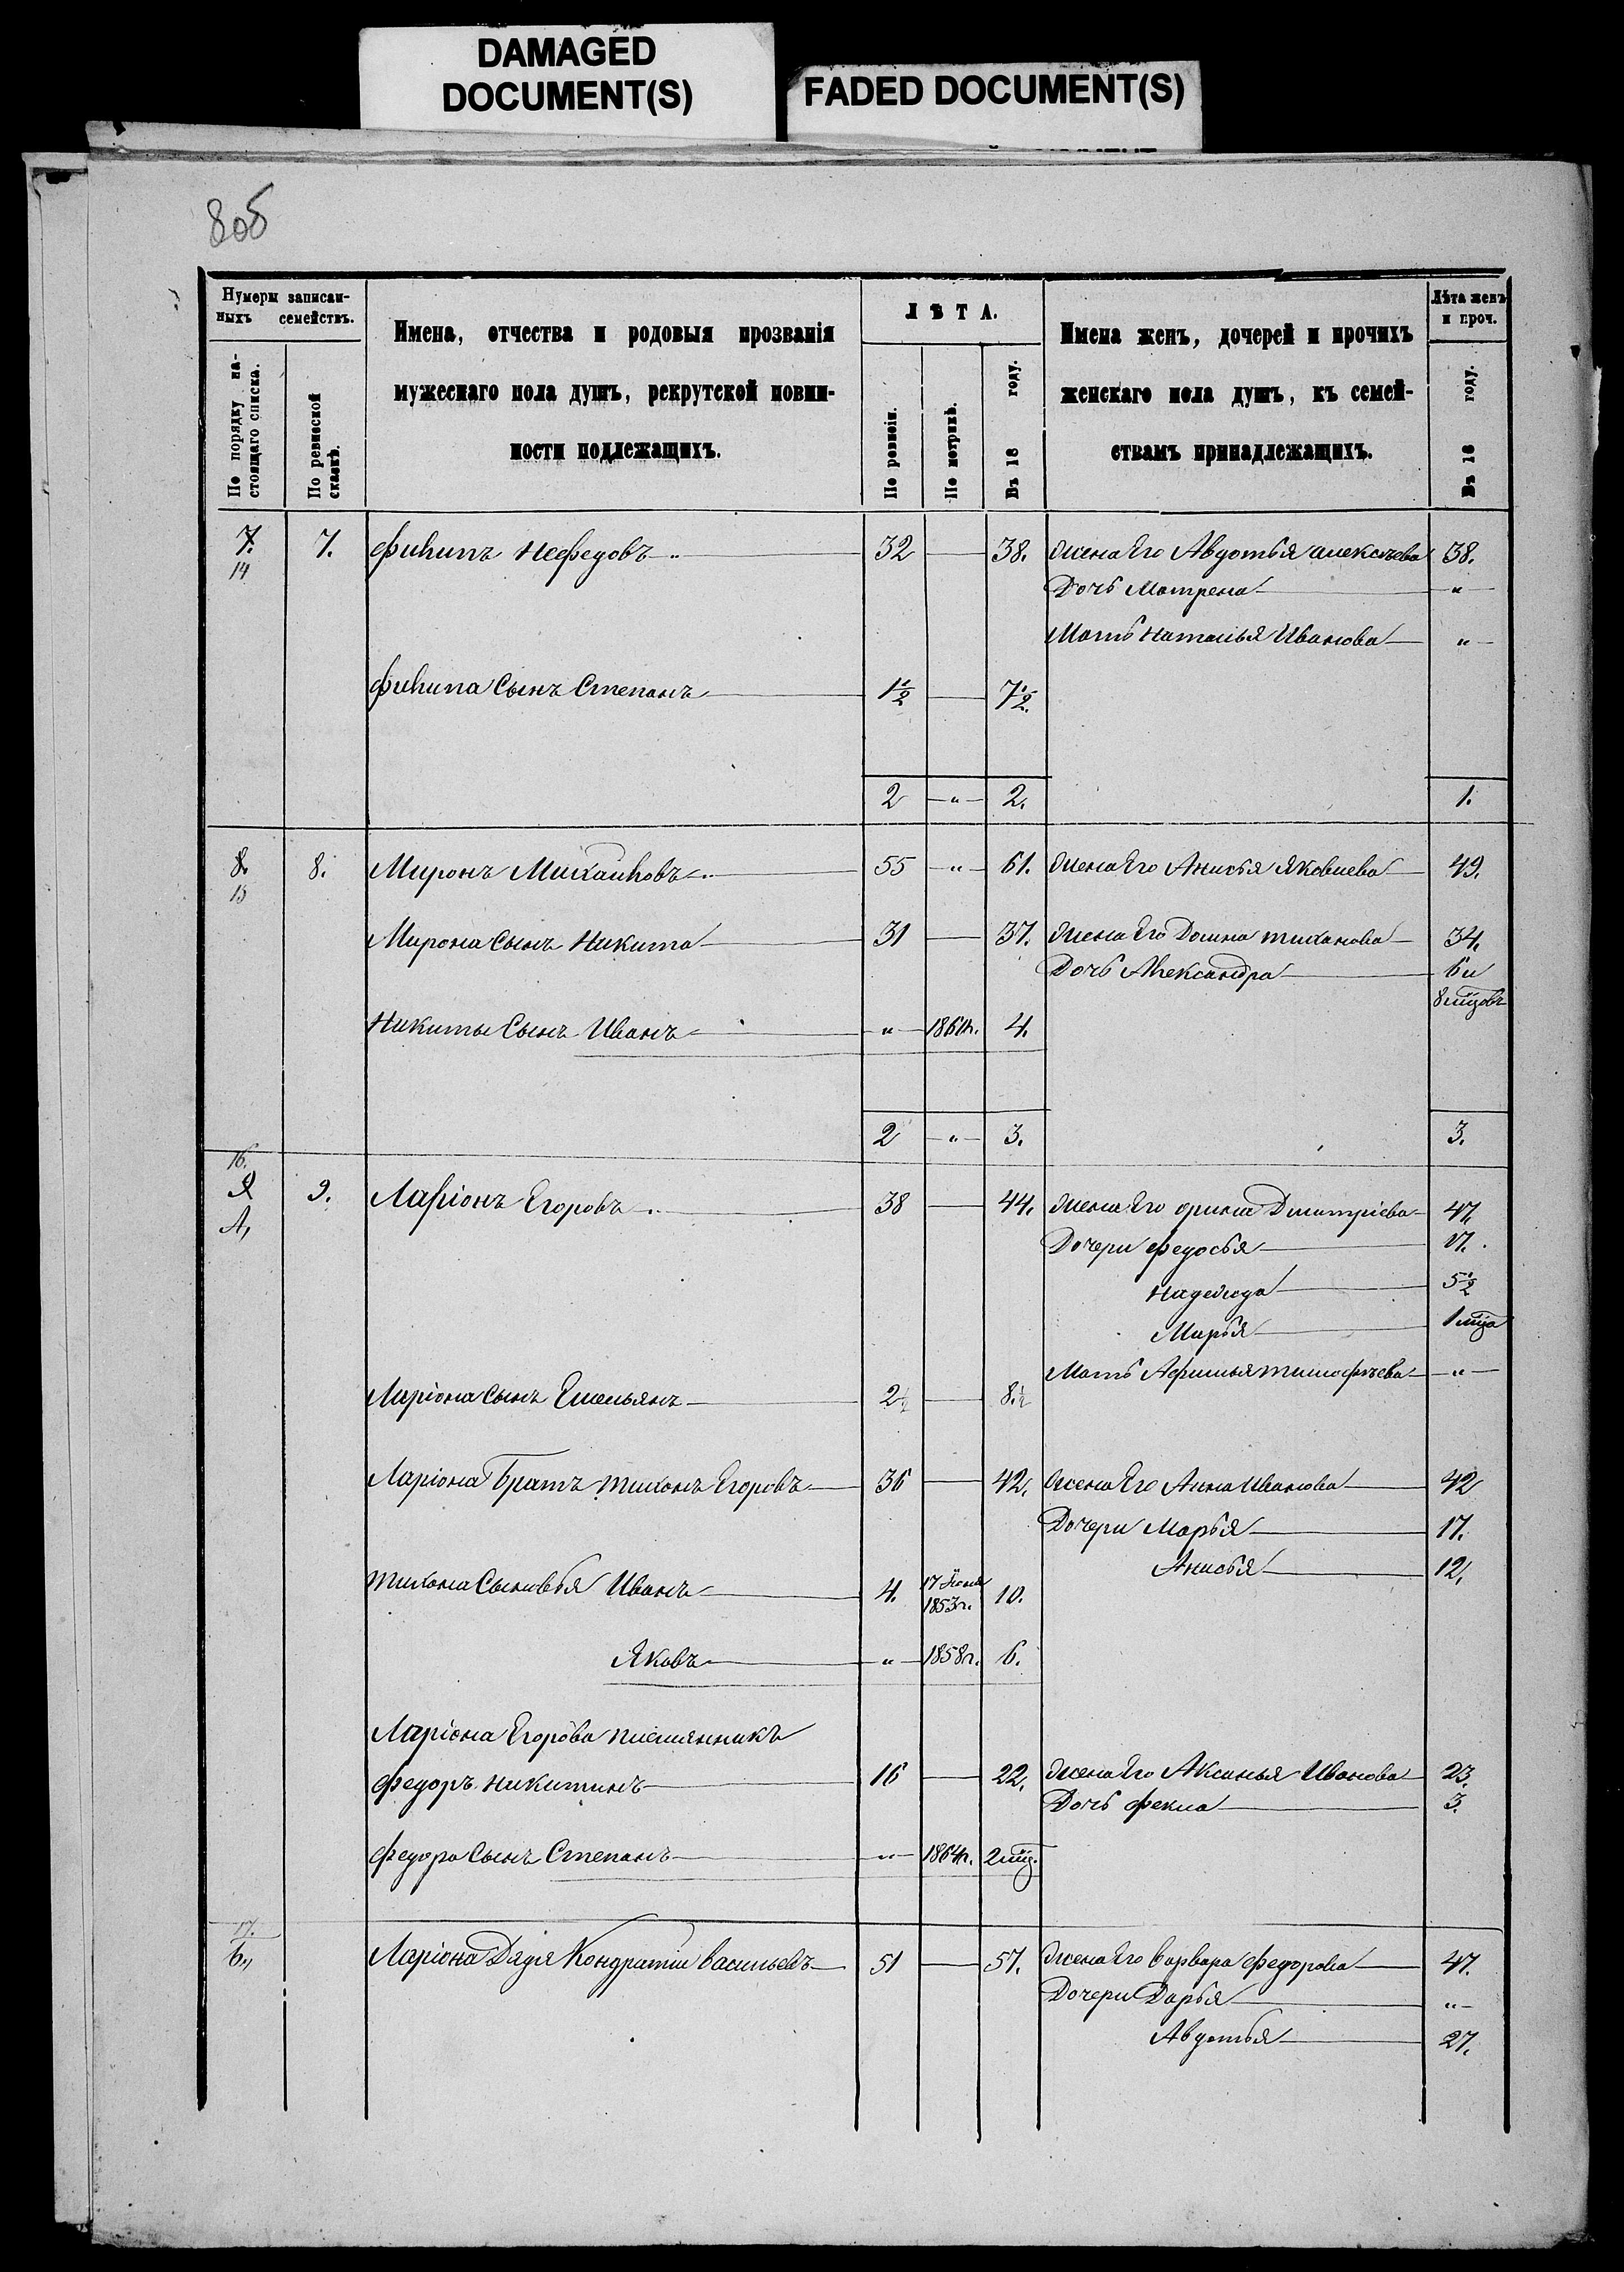 DAMAGED
DOCUMENT(S)
FADED DOCUMENT(S)
80б
Нумеры записан-
ныхъ семействъ.
По порядку на-
стоящаго списка.
По ревизской
сказкѣ.
Имена, отчества и родовыя прозванія
мужескаго пола душъ, рекрутской повин-
ности подлежащихъ.
ЛѢТА.
По ревизіи.
По метрикѣ.
Въ 18 году.
Имена женъ, дочерей и прочихъ
женскаго пола душъ, къ семей-
ствамъ принадлежащихъ.
Лѣта женъ
и проч.
Въ 18 году.
7. 7. Филипъ Нефедовъ „ 32 38. Жена Его Авдотья Алексѣева 38.
14
Дочь Матрена „
Мать Наталья Иванова „
Филипа Сынъ Степанъ 1½ 7½.
2 „ 2. 1.
8. 8. Миронъ Михайловъ „ 55 „ 61. Жена Его Анисья Яковлева 49.
15
Мирона Сынъ Никита 31 37. Жена Его Домна Тиханова 34.
Дочь Александра 6 и
8 мцовъ
Никиты Сынъ Иванъ „ 1861г. 4.
2 „ 3. 3.
16.
9 9. Ларіонъ Егоровъ „ 38 44. Жена Его Орина Дмитріева 47.
А,
Дочери Федосья 17.
Надежда 5½
Марья 1 мца
Мать Афимья Тимофѣева „
Ларіона Сынъ Емельянъ 2½ 8.½
Ларіона Братъ Тихонъ Егоровъ 36 42. Жена Его Анна Иванова 42
Дочери Марья 17.
Анисья 12.
Тихона Сыновья Иванъ 4. 17
1853г. 10.
Яковъ „ 1858г. 6.
Ларіона Егорова племянникъ
Федоръ Никитинъ 16 22. Жена Его Аксинья Иванова 23.
Дочь Фекла 3.
Федора Сынъ Степанъ „ 1864г. 2 мц.
17.
б„ Ларіона Дядя Кондратій Васильевъ 51 57. Жена Его Варвара Федорова 47.
Дочери Дарья „
Авдотья 27.